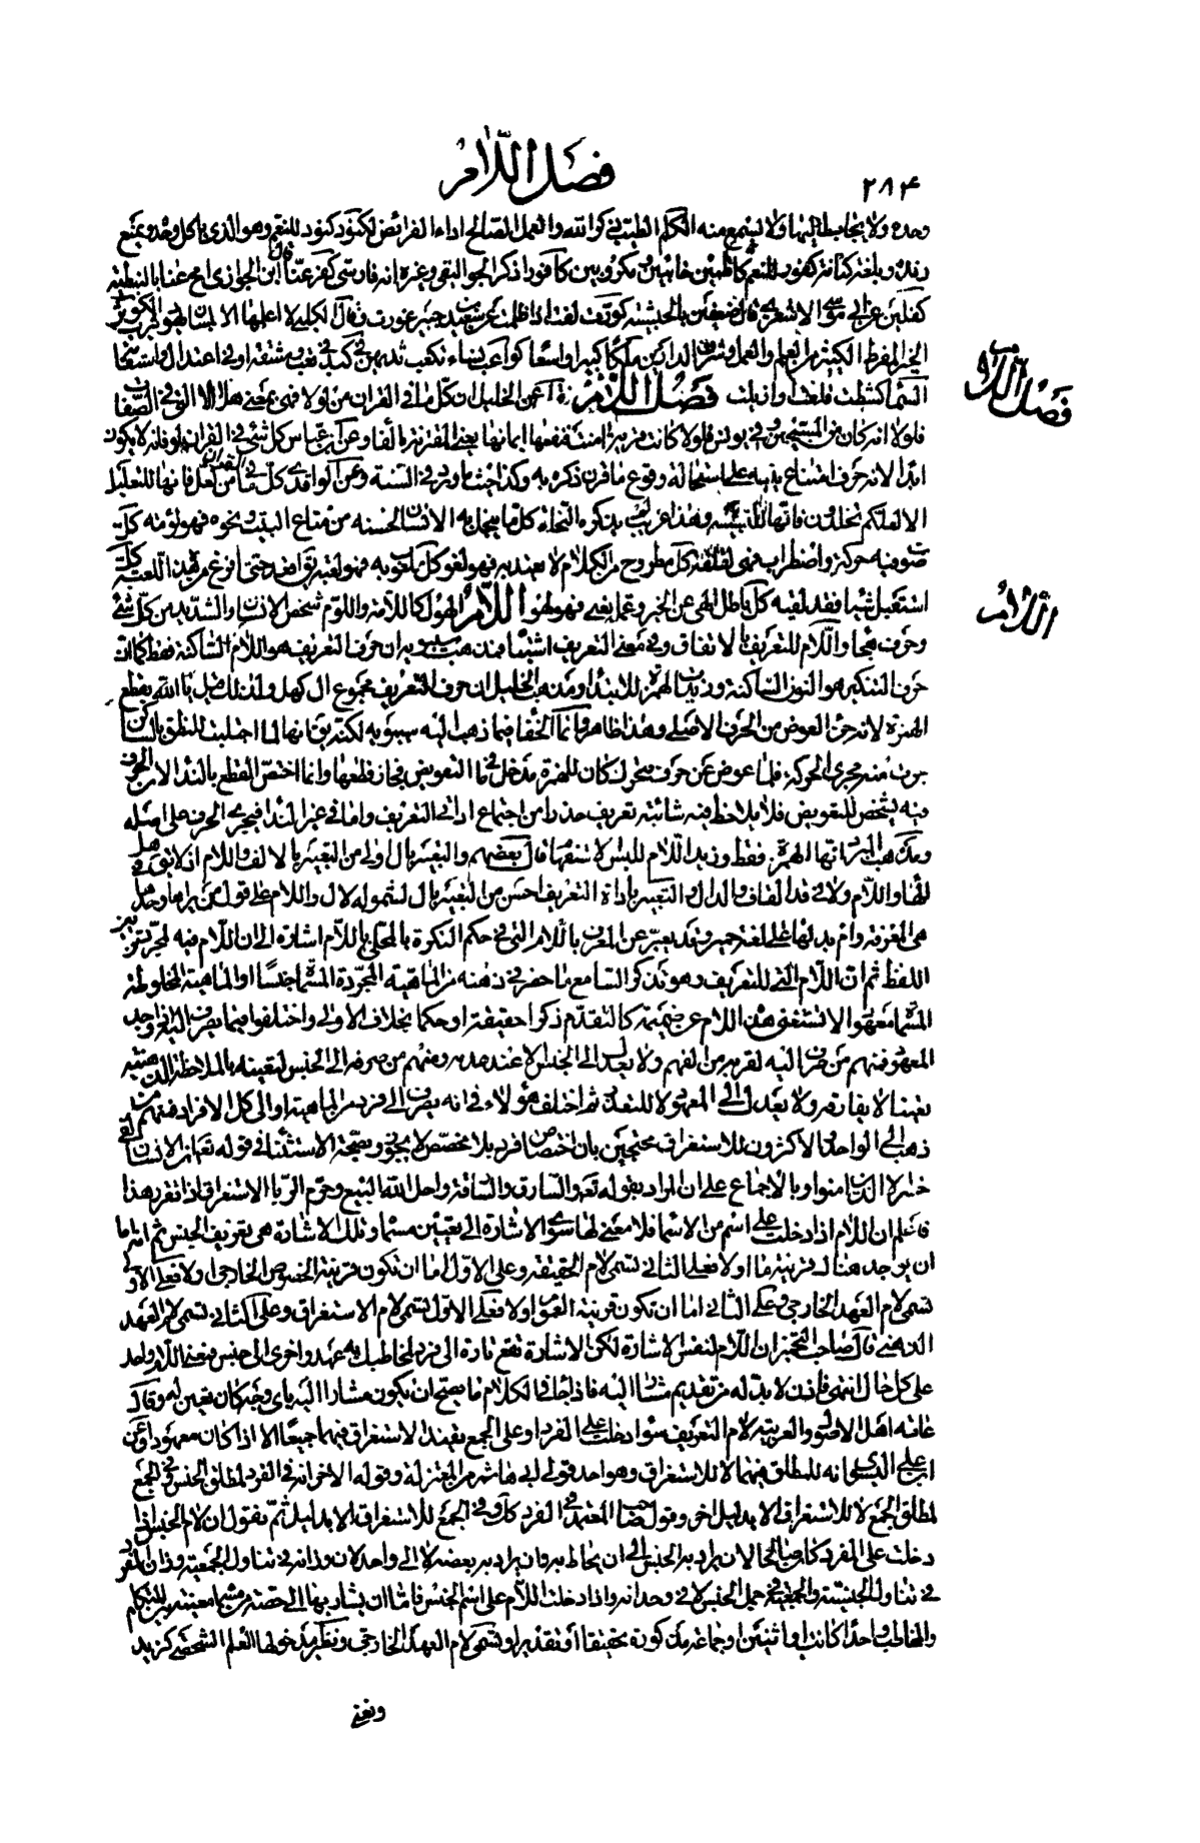 فصل اللام
٢٨٤
وحده ولا يخاطب اليها ولا ليسمع منه الكلم الطيب ذكر الله والعمل الصالح اداء الفرائض لكنود كنود للنعم وهو الذي ياكل وحده ويمنع
رفده وبلغة كنانة كفور للنعم كاظمين خائبين مكروبين كافورا ذكر الجواليقي وغيره انه فارسي كفر عنا قال ابن الجوزي امح عنا بالنبطية
كفلين عن ابي موسى الاشعري قال ضعفين بالحبشية كورت لفت اظلمت عن سعيد بن جبير غورت
الخير المفرط الكثير من العلم والعمل وشرف الدارين ملكا كبيرا واسعا كواعب نساء تكعب ثديهن في كبد في تعب ومشقة او في اعتدال واستقامة
السماء كشطت قلعت وازيلت فصل اللام عن الخليل ان كل ما في القرآن من لولا فهي بمعنى هلا الا التي في الصافات
فصل اللام
فلولا انه كان من المسبحين وفي يونس فلولا كانت قرية آمنت فنفعها ايمانها
ابدا لانه حرف امتناع ينبه على استحالة وقوع ما قرن ذكره به وكذا حيثما ورد في السنة وعن الواقدي كل ما في القرآن من لعل فانها للتعليل
الا لعلكم تخلدون فانها للتشبيه وهذا غريب لم يذكره النحاة كل ما يتجمل به الانسان لحسنه من متاع البيت ونحوه فهو لؤمة كل
صوت فيه حركة واضطراب فهي لقلقة كل مطروح من الكلام لا يعتد به فهو لغو
استقبل شيئا فقد لقيه كل باطل الهى عن الخير وعما يعني فهو لهو اللام الهول كاللامة واللوم شخص الانسان والشديد من كل شيء
اللام
وحرف هجاء واللام للتعريف بالاتفاق وفي معنى التعريف اشتباه فمذهب سيبويه ان حرف التعريف هو اللام الساكنة فقط كما ان
حرف التنكير هو النون الساكنة وزيدت الهمزة للابتداء ومذهب الخليل ان حرف التعريف مجموع ال كهل ولذلك قيل يا الله بقطع
الهمزة لانه جزء العوض من الحرف الاصلي وهذا ظاهر وانما الخفاء فيما ذهب اليه سيبويه لكنه يقال انها لما اجتلبت للنطق بالساكن
جرت منه مجرى الحركة فلما عوض عن حرف متحرك كان للهمزة مدخل ما في التعويض فجاز قطعها وانما اختص القطع بالنداء لان الحرف
فيه يتمحض للتعويض فلا يلاحظ فيه شائبة تعريف حذرا من اجتماع اداتي التعريف واما في غير النداء فيجري الحرف على اصله
ومذهب المبرد انها الهمزة فقط وزيد اللام للبس لاستفهام قال بعضهم والتعبير بال اولى من التعبير بالالف واللام اذ لا يقال في هل
الهاء واللام ولا في قد القاف والدال والتعبير باداة التعريف احسن من التعبير بال لشموله لال واللام على قول من يراها وحدها
هي المعرفة وام بدلها على لغة حمير وقد يعبر عن المعرف باللام التي في حكم النكرة بالمحلى باللام اشارة الى ان اللام فيه لمجرد تزيين
اللفظ ثم ان اللام التي للتعريف وهو تذكر السامع ما حضر في ذهنه من الماهية المجردة المسماة جنسا او الماهية المخلوطة
المسماة معهودا لا تستغني هذه اللام عن ضميمة كالتقدم ذكرا حقيقة او حكما بخلاف الاولى واختلفوا فيما يصرف اليه
المعهود فمنهم من صرف اليه لقربه من الفهم ولا يعدل الى الجنس الا عند عدمه ومنهم من صرفه الى الجنس
ذهب الى الواحد والاكثرون للاستغراق محتجين بان اختصاص فرد بلا مخصص لا يجوز وبصحة الاستثناء في قوله تعالى ان الانسان لفي
خسر الا الذين امنوا وبالاجماع على ان المراد بقوله تعالى والسارق والسارقة واحل الله البيع وحرم الربا الاستغراق اذا تقرر هذا
فاعلم ان اللام اذا دخلت على اسم من الاسماء فلا معنى لها سوى الاشارة الى تعيين مسماه وتلك الاشارة هي تعريف الجنس ثم انه اما
ان يوجد هناك قرينة ما او لا فعلى الثاني تسمى لام الحقيقة وعلى الاول اما ان تكون قرينة الخصوص الخارجي او لا فعلى الاول
تسمى لام العهد الخارجي وعلى الثاني اما ان تكون قرينة العموم او لا فعلى الاول تسمى لام الاستغراق وعلى الثاني تسمى لام العهد
الذهني قال صاحب التخمير ان اللام لنفس الاشارة لكن الاشارة تقع تارة الى فرد لمخاطبك به عهد واخرى الى جنس فمعنى اللام واحد
على كل حال انتهى فاذن لا بد له من تقديم مشار اليه فاذا جاء في الكلام ما يصح ان يكون مشارا اليه باي وجه كان تعين له وقال
عامة اهل الاصول والعربية لام التعريف سواء دخلت على المفرد او على الجمع تفيد الاستغراق فيهما جميعا الا اذا كان معهودا وعن
ابي علي انه للمطلق فيهما لا للاستغراق وهو احد قولي ابي هاشم من المعتزلة وقوله الاخر انه في المفرد لمطلق الجنس وفي الجمع
لمطلق الجمع لا للاستغراق الا بدليل اخر وقول صاحب المعتمد في المفرد كذلك وفي الجمع للاستغراق الا بدليل ثم نقول ان لام الجنس اذا
دخلت على المفرد كان صالحا لان يراد به الجنس الى ان يحاط به وان يراد به بعضه لا الى الواحد لان وزانه في تناول الجمعية وزان المفرد
في تناول الجنسية والجمعية في جمل الجنس لا في وحدانه واذا دخلت اللام على اسم الجنس فاما ان يشار بها الى حصة من مسماه معينة بين المتكلم
والمخاطب واحدا كانت او اثنين او جماعة مذكورة تحقيقا او تقديرا وتسمى لام العهد الخارجي ونظير مدخولها العلم الشخصي كزيد
ونعني